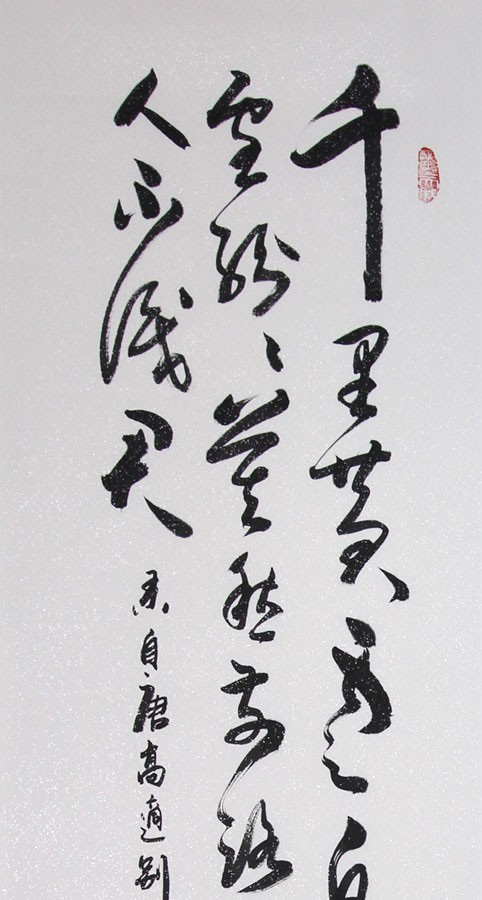 千里黄云白
雪紛々莫愁前路
人不識君
录自唐高適别